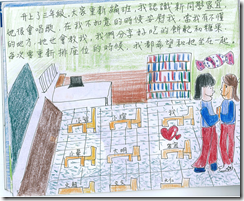 升上了三年級,大家重新編班,我認識新同學家宜,
他很會唱歌,在我不如意的時候安慰我,當我有不懂
的地方,他也會教我,我們分享好吃的餅乾和糖果
每次當重新排座位的時候,我都希望和他坐在一起。
我